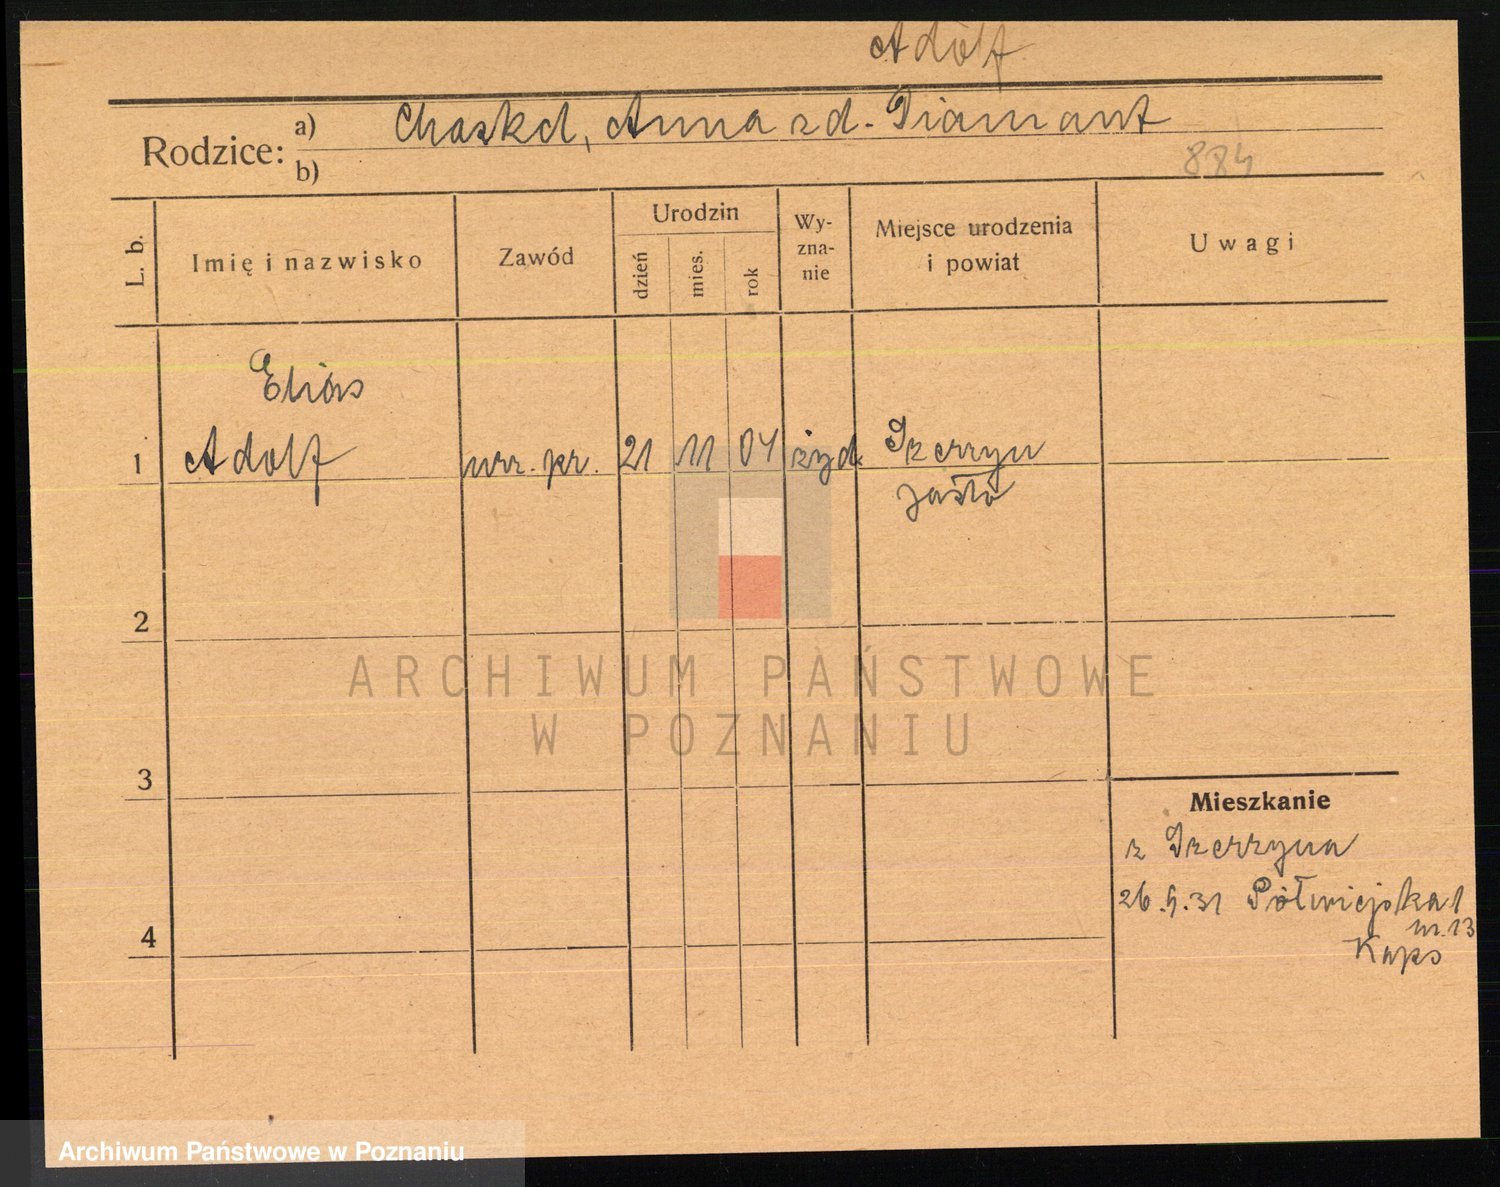 Adolf
Rodzice: a) Chaskel, Anna zd. Diamant
b)
884
L. b.
Imię i nazwisko
Zawód
Urodzin
dzień
mies.
rok
Wy-
zna-
nie
Miejsce urodzenia
i powiat
Uwagi
Elias
1 Adolf urz. pr. 21 11 04 żyd. Szerzyn
Jasło
2
ARCHIWUM PAŃSTWOWE
W POZNANIU
3
Mieszkanie
z Szerzyna
26.9.31 Półwiejska 1
m. 13
4
Archiwum Państwowe w Poznaniu